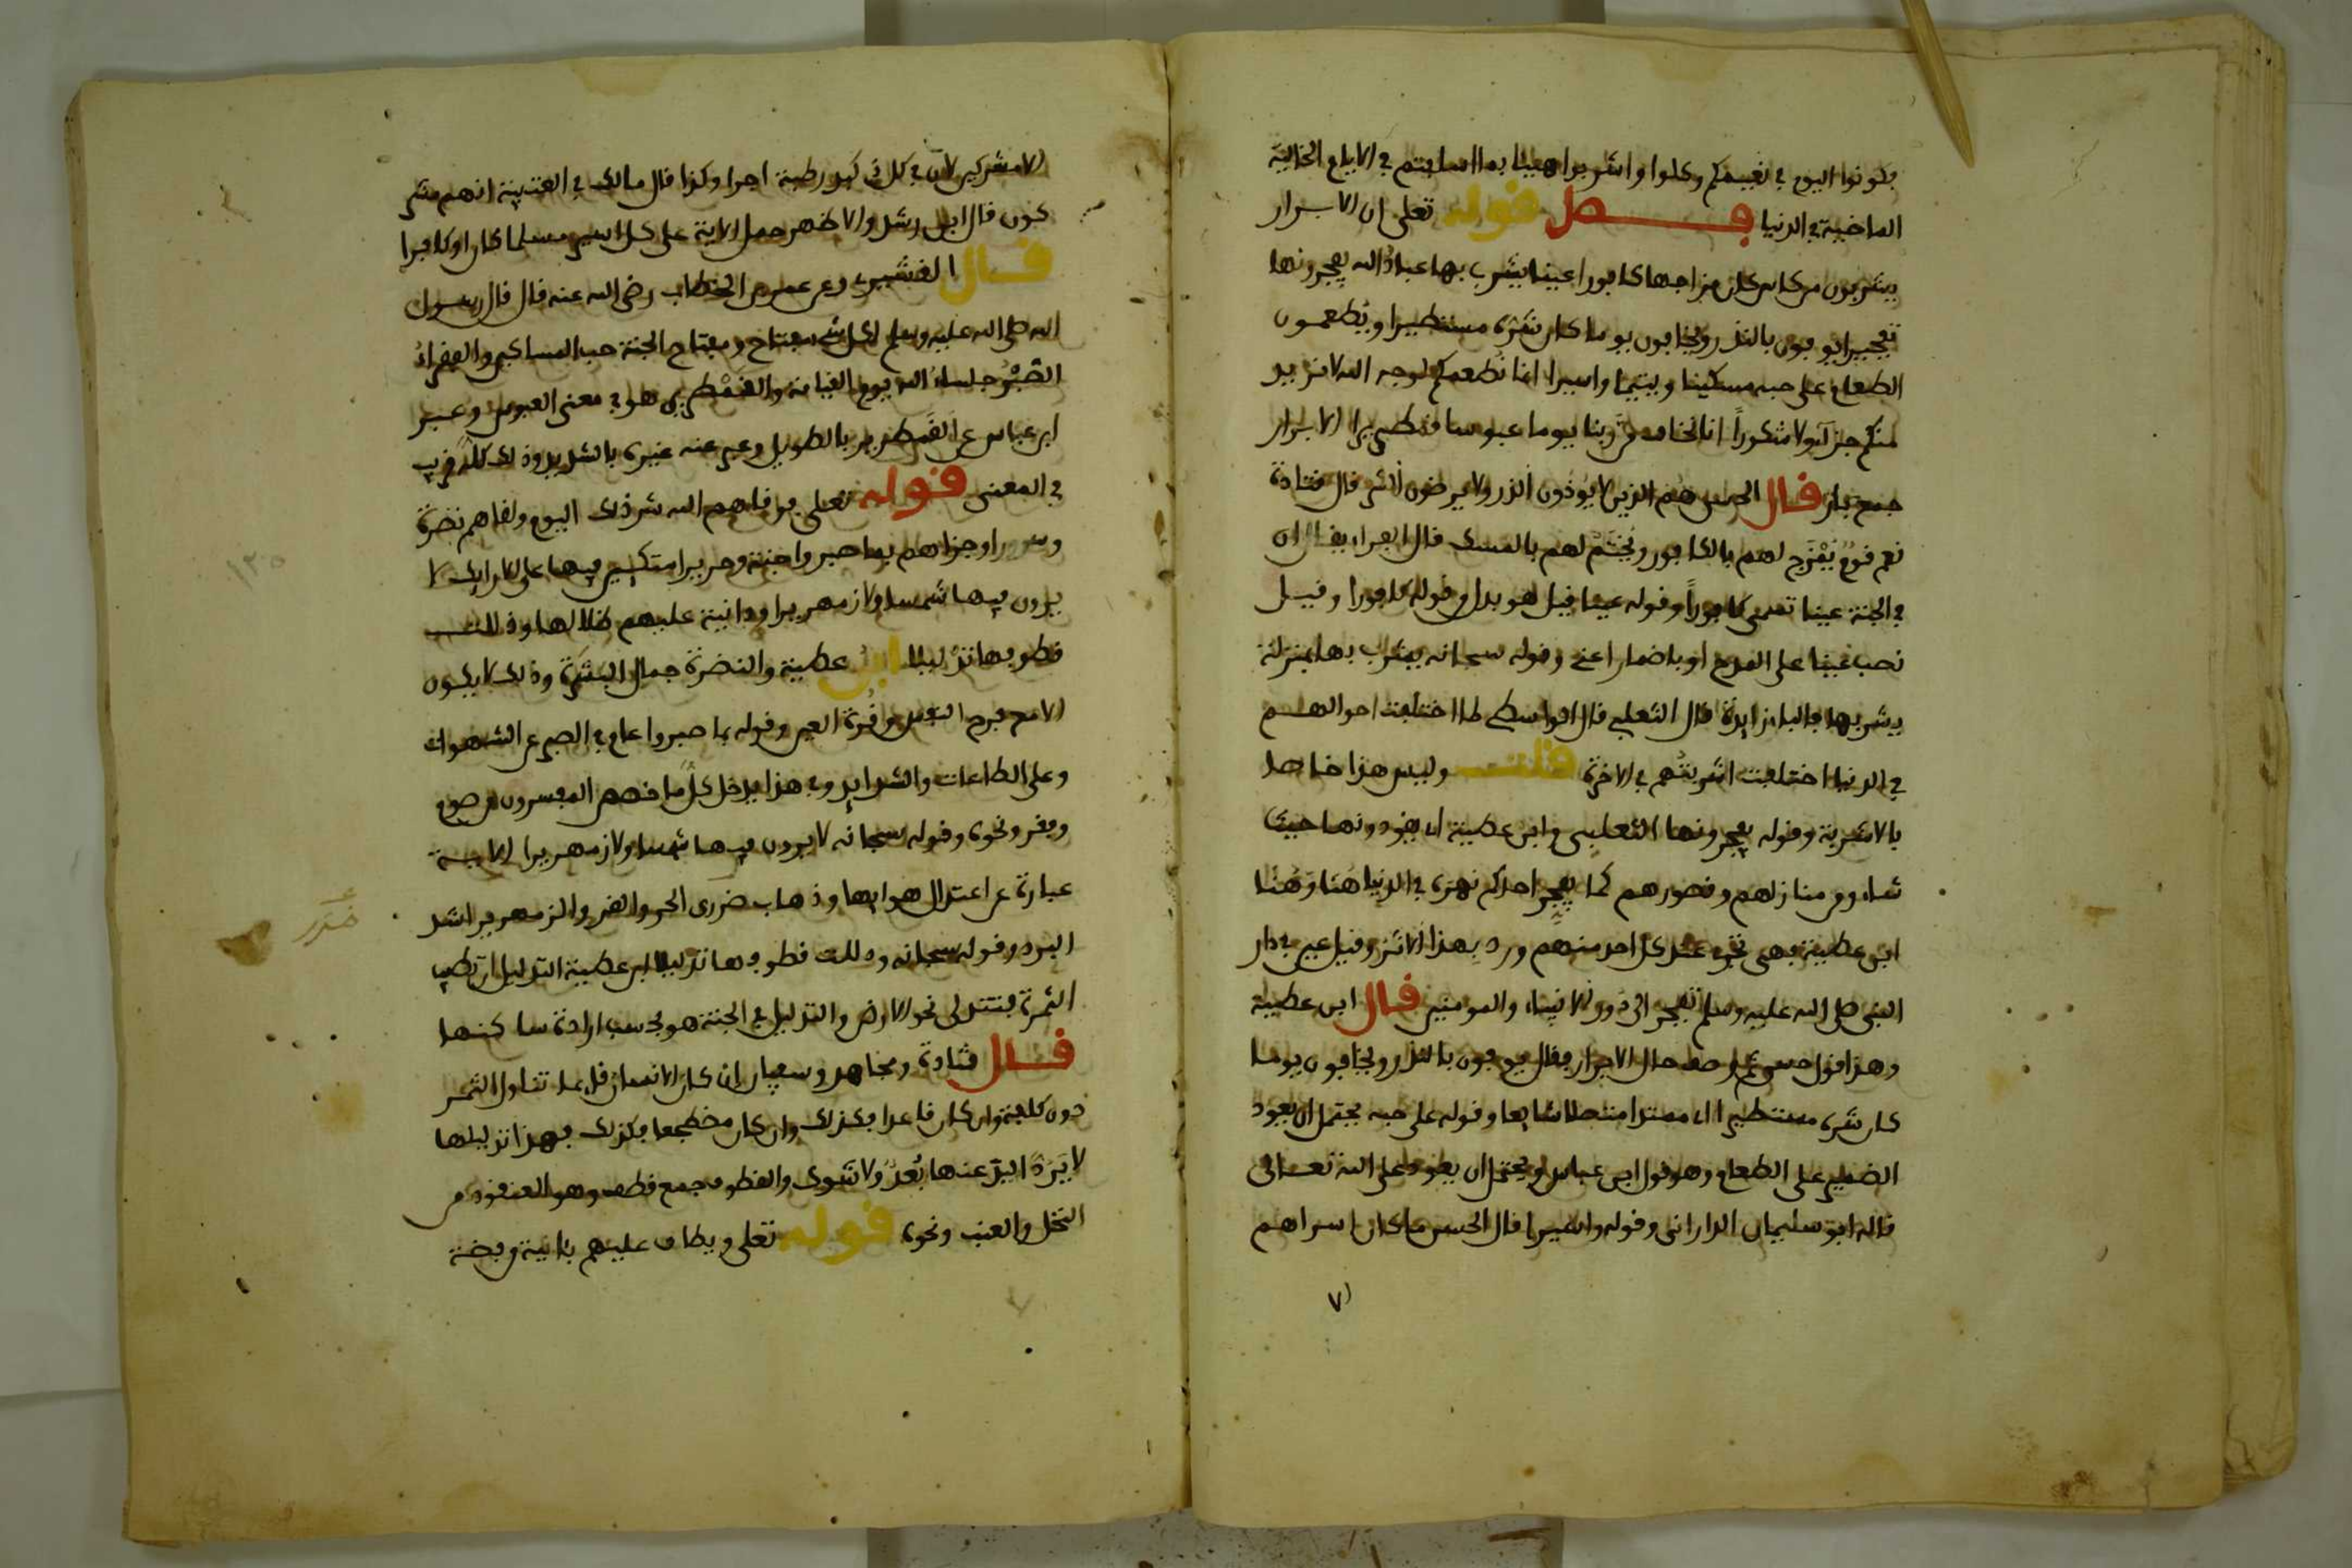 فكونوا اليوم في نعيمكم وكلوا واشربوا هنيئا بما اسلفتم في الايام الخالية
الماضية في الدنيا فصل قوله تعلى ان الابرار
يشربون من كاس كان مزاجها كافورا عينا يشرب بها عباد الله يفجرونها
تفجيرا يوفون بالنذر ويخافون يوما كان شره مستطيرا ويطعمون
الطعام على حبه مسكينا ويتيما واسيرا انما نطعمكم لوجه الله لا نريد
منكم جزاء ولا شكوراً انا نخاف من ربنا يوما عبوسا قمطريرا الابرار
جمع بار قال الحسن هم الذين لا يوذون الذر ولا يرضون الشر قال قتادة
نعم قوم يُمْزج لهم بالكافور ويُختَم لهم بالمسك قال الفراء يقال ان
في الجنة عينا تسمى كافوراً وقوله عينا قيل هو بدل من قوله كافورا وقيل
نصب عينا على المدح او باضمار اعني وقوله سبحانه يشرب بها بمنزلة
يشربها فالباء زايدة قال الثعلبي قال الواسطي لما اختلفت احوالهم
في الدنيا اختلفت اشربتُهم في الاخرة قلت وليس هذا خاصا
بالاشربة وقوله يفجرونها الثعلبي وابن عطية اي يقودونها حيث
شاءوا من منازلهم وقصورهم كما يفجر احدكم نهره في الدنيا هنا وهُنا
ابن عطية فهي تجري عند كل احد منهم ورد بهذا الاثر وقيل عين في دار
النبي صلى الله عليه وسلم تفجر الى دور الانبياء والمومنين قال ابن عطية
وهذا قول حسن ثم وصف حال الابرار فقال يوفون بالنذر ويخافون يوما
كان شره مستطيرا اي ممتدا متصلا شايعا وقوله على حبه يحتمل ان يعود
الضمير على الطعام وهو قول ابن عباس ويحتمل ان يعود على الله تعالى
قاله ابو سليمان الداراني وقوله واسيرا قال الحسن ما كان اسراهم
الا مشركين لان في كل ذي كبد رطبة اجرا وكذا قال مالك في العتبية انهم مشر
كون قال ابن رشد والاظهر حمل الاية على كل اسير مسلما كان او كافرا
قال القشيري وعن عمر بن الخطاب رضي الله عنه قال قال رسول
الله صلى الله عليه وسلم لكل شيء مفتاح ومفتاح الجنة حب المساكين والفقراءُ
الصُّبُرُ جلساءُ الله يوم القيامة والقَمْطرير هو في معنى العبوس وعبر
ابن عباس عن القمطرير بالطويل وعبر عنه غيره بالشديد وذلك كله قريب
في المعنى قوله تعلى فوقاهم الله شر ذلك اليوم ولقاهم نضرة
وسرورا وجزاهم بما صبروا جنة وحريرا متكئين فيها على الارايك لا
يرون فيها شمسا ولا زمهريرا ودانية عليهم ظلالها وذللت
قطوفها تذليلا ابن عطية والنضرة جمال البشرة وذلك لا يكون
الا مع فرح النفس وقُرة العين وقوله بما صبروا عام في الصبر عن الشهوات
وعلى الطاعات والشدايد وفي هذا يدخل كل ما خصص المفسرون من صوم
وفقر ونحوه وقوله سبحانه لا يرون فيها شمسا ولا زمهريرا الاية
عبارة عن اعتدال هوايها وذهاب ضررى الحر والقر والزمهرير اشد
البرد وقوله سبحانه وذللت قطوفها تذليلا ابن عطية التذليل ان تطيب
الثمرة فتتدلى نحو الارض والتذليل في الجنة هو بحسب ارادة ساكنها
قال قتادة ومجاهد وسفيان ان كان الانسان قايما تناول الثمر
دون كلفة وان كان قاعدا فكذلك وان كان مضطجعا فكذلك فهذا تذليلها
لا يَرُدُّ اليدَ عنها بُعدٌ ولا شوك والقطوف جمع قطف وهو العنقود من
النخل والعنب ونحوه قوله تعلى ويطاف عليهم بئانية من فضة